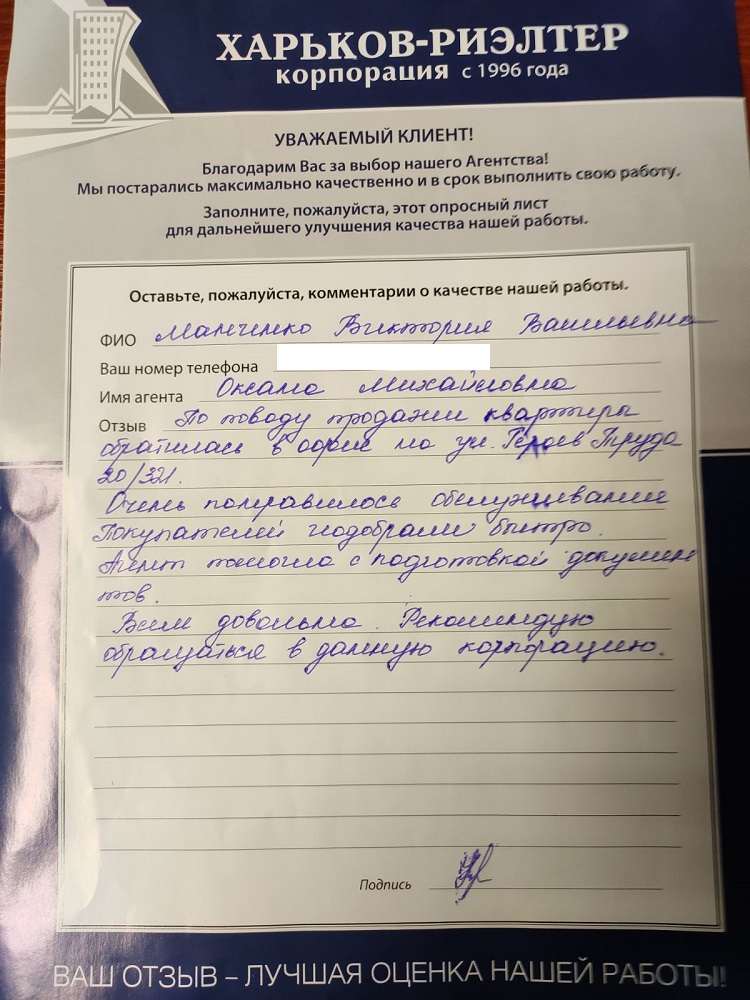 ХАРЬКОВ-РИЭЛТЕР
корпорация с 1996 года
УВАЖАЕМЫЙ КЛИЕНТ!
Благодарим Вас за выбор нашего Агентства!
Мы постарались максимально качественно и в срок выполнить свою работу.
Заполните, пожалуйста, этот опросный лист
для дальнейшего улучшения качества нашей работы.
Оставьте, пожалуйста, комментарии о качестве нашей работы.
ФИО Виктория Васильевна
Ваш номер телефона
Имя агента Оксана Михайловна
Отзыв По поводу продажи квартиры
обратилась в офис на ул. Героев Труда
20/321.
Очень понравилось обслуживание
Покупателей подобрали быстро.
Агент помогла с подготовкой докумен
тов.
Всем довольна. Рекомендую
обращаться в данную корпорацию.
Подпись
ВАШ ОТЗЫВ – ЛУЧШАЯ ОЦЕНКА НАШЕЙ РАБОТЫ!